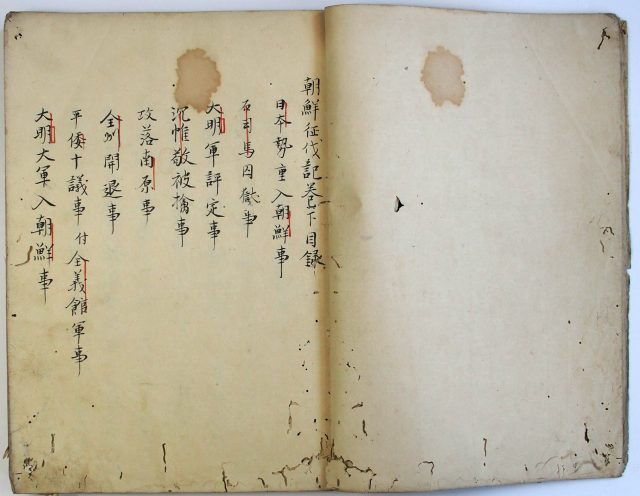 朝鮮征伐記巻下目録
日本勢重入朝鮮事
石司馬囚獄事
大明軍評定事
沉惟敬被擒事
攻落南原事
全州開退事
平倭十議事 付 全義館軍事
大明大軍入朝鮮事